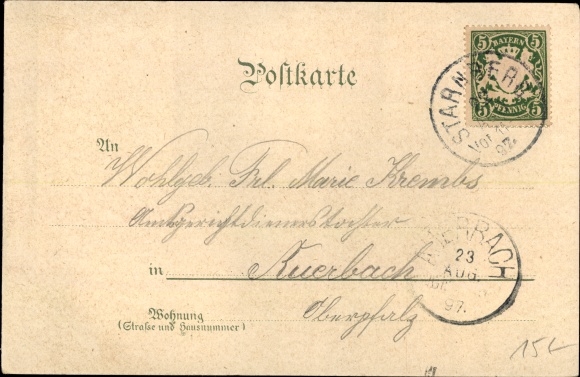 5 BAYERN 5
5 PFENNIG 5
STARNBERG
Vor.
97.
Postkarte
An
Wohlgeb. Frl. Marie Krembs
Amtsgerichtdienerstochter
in Auerbach
AUERBACH
23
AUG.
97.
Wohnung
(Straße und Hausnummer)
Oberpfalz
15